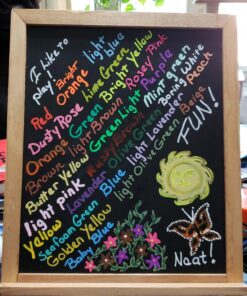 I Like to
play!
Bright
Orange
light
blue
Red
Lime Green
Bright Yellow
Rosey Pink
Dusty Rose
Purple
Orange
Green
Light
Mint green
Boring White
Peach
Brown
light Brown
Butter Yellow
Olive Green
light Lavender
Beige
light Pink
Lavender
light Olive Green
FUN!
Yellow
Blue
Seafoam Green
Golden Yellow
Baby Blue
Naat!